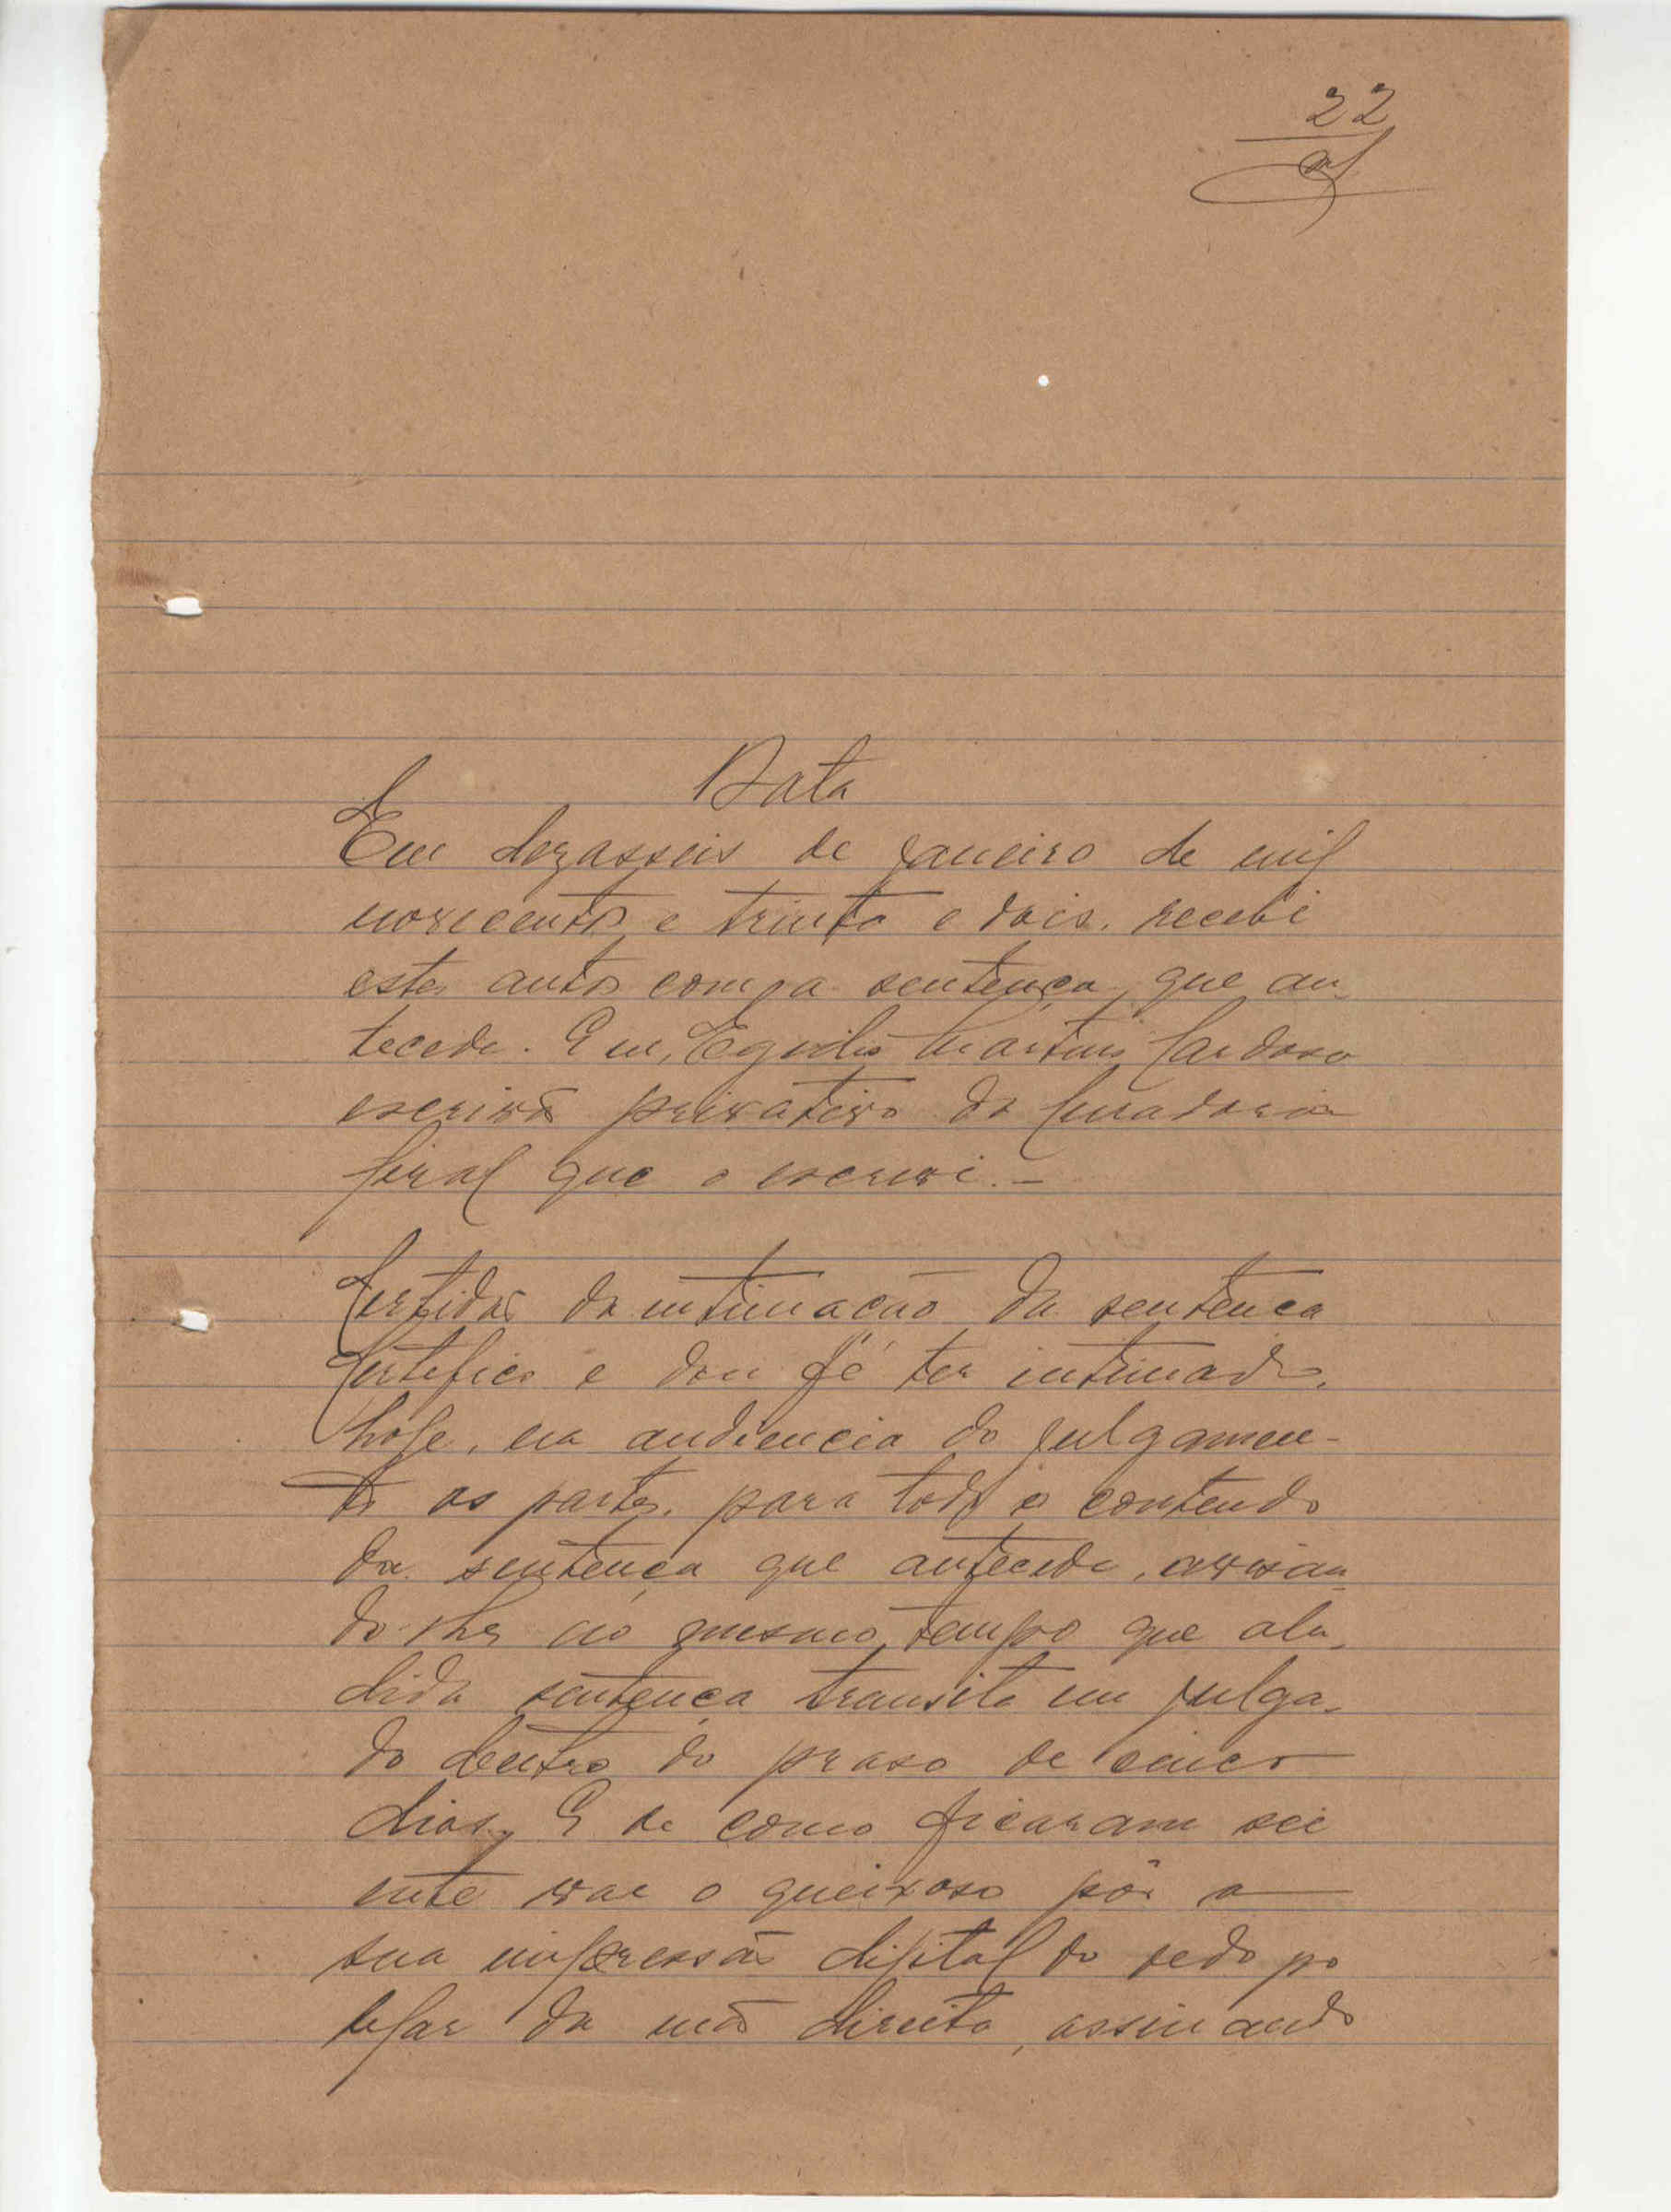 22
Data
Em dezasseis de Janeiro de mil
novecentos e trinta e dois, recebi
estes autos com a sentença que an-
tecede. Eu, Egidio Martins Cardoso
escrivão privativo da Curadoria
Geral que o escrevi.-
Certidão da intimação da sentença
Certefico e dou fé ter intimado,
hoje, na audiencia do julgamen-
to as partes, para todo o conteudo
da sentença que antecede, avisan-
do-lhes ao mesmo tempo que alu-
dida sentença transita em julga-
do dentro do praso de cinco
dias. E de como ficaram sci
ente vae o queixoso pôr a
sua impressão digital do dedo po
legar da mão direita, assinando